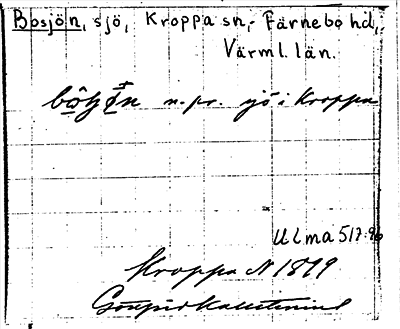 Bosjön, sjö, Kroppa sn, Färnebo hd,
Värml. län.
n. pr. sjö i Kroppa
Ulma 517:96
Kroppa N 1899